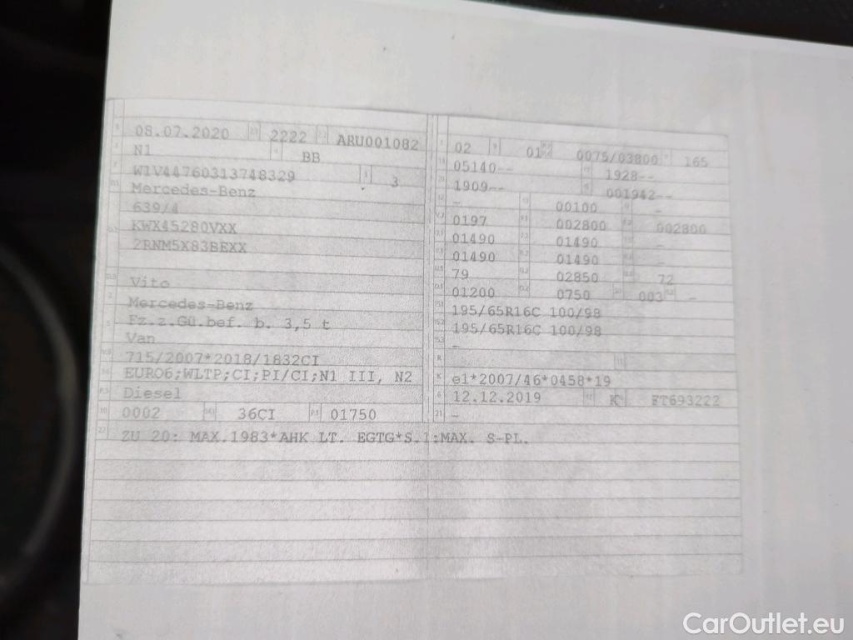 08.07.2020 2222 ARU001082
N1 BB
W1V44760313748329 3
Mercedes-Benz
639/4
KWX45280VXX
ZRNM5X83BEXX
Vito
Mercedes-Benz
Fz.z.Gü.bef. b. 3,5 t
Van
715/2007*2018/1832CI
EURO6;WLTP;CI;PI/CI;N1 III, N2
Diesel
0002 36CI 01750
ZU 20: MAX.1983*AHK LT. EGTG*S.1:MAX. S-PL.
02 01 0075/03800 165
05140-- 1928--
1909-- 001942--
- 00100 -
0197 002800 002800
01490 01490 -
01490 01490 -
79 02850 72
01200 0750 003 -
195/65R16C 100/98
195/65R16C 100/98
-
e1*2007/46*0458*19
12.12.2019 K FT693222
-
CarOutlet.eu